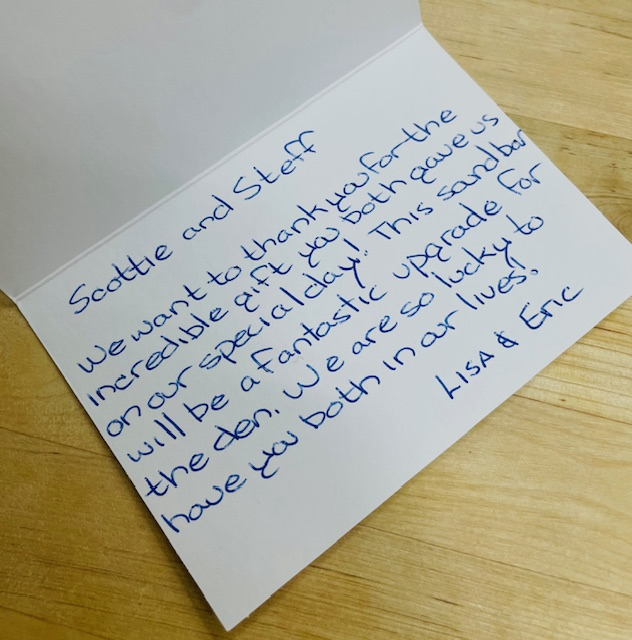 Scottie and Steff
We want to thank you for the
incredible gift you both gave us
on our special day! This sandbar
will be a fantastic upgrade for
the den. We are so lucky to
have you both in our lives!
Lisa & Eric